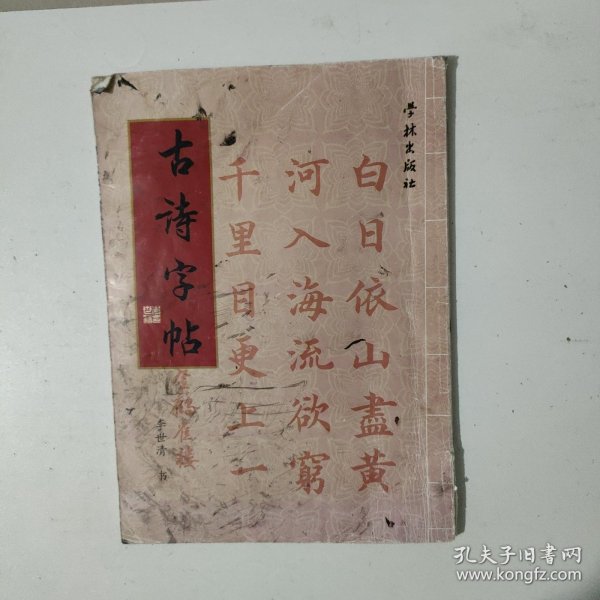 學林出版社
白日依山盡黃
河入海流欲窮
千里目更上一
登鸛雀樓
古诗字帖
李世清 书
孔夫子旧书网
www.kongfz.com